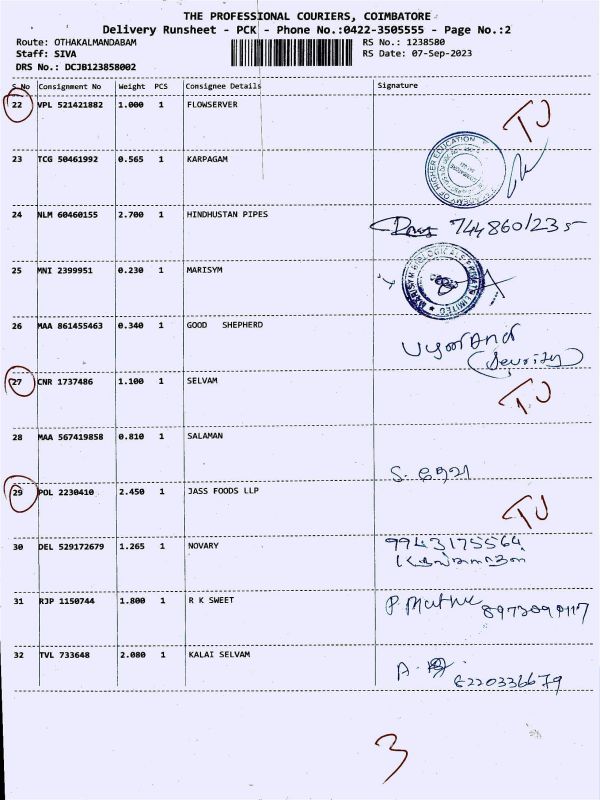 THE PROFESSIONAL COURIERS, COIMBATORE
Delivery Runsheet - PCK - Phone No.:0422-3505555 - Page No.:2
Route: OTHAKALMANDABAM RS No.: 1238580
Staff: SIVA RS Date: 07-Sep-2023
DRS No.: DCJB123858002
S.No Consignment No Weight PCS Consignee Details Signature
22 VPL 521421882 1.000 1 FLOWSERVER
TJ
23 TCG 50461992 0.565 1 KARPAGAM
OF HIGHER EDUCATION
24 NLM 60460155 2.700 1 HINDHUSTAN PIPES
7448601235
25 MNI 2399951 0.230 1 MARISYM
MARISYM BIOLOGICALS PRIVATE LIMITED
26 MAA 861455463 0.340 1 GOOD SHEPHERD
(Security)
27 CNR 1737486 1.100 1 SELVAM
TJ
28 MAA 567419858 0.810 1 SALAMAN
29 POL 2230410 2.450 1 JASS FOODS LLP
TJ
30 DEL 529172679 1.265 1 NOVARY
9943175564
31 RJP 1150744 1.800 1 R K SWEET
P Muthu
32 TVL 733648 2.080 1 KALAI SELVAM
8220336679
3